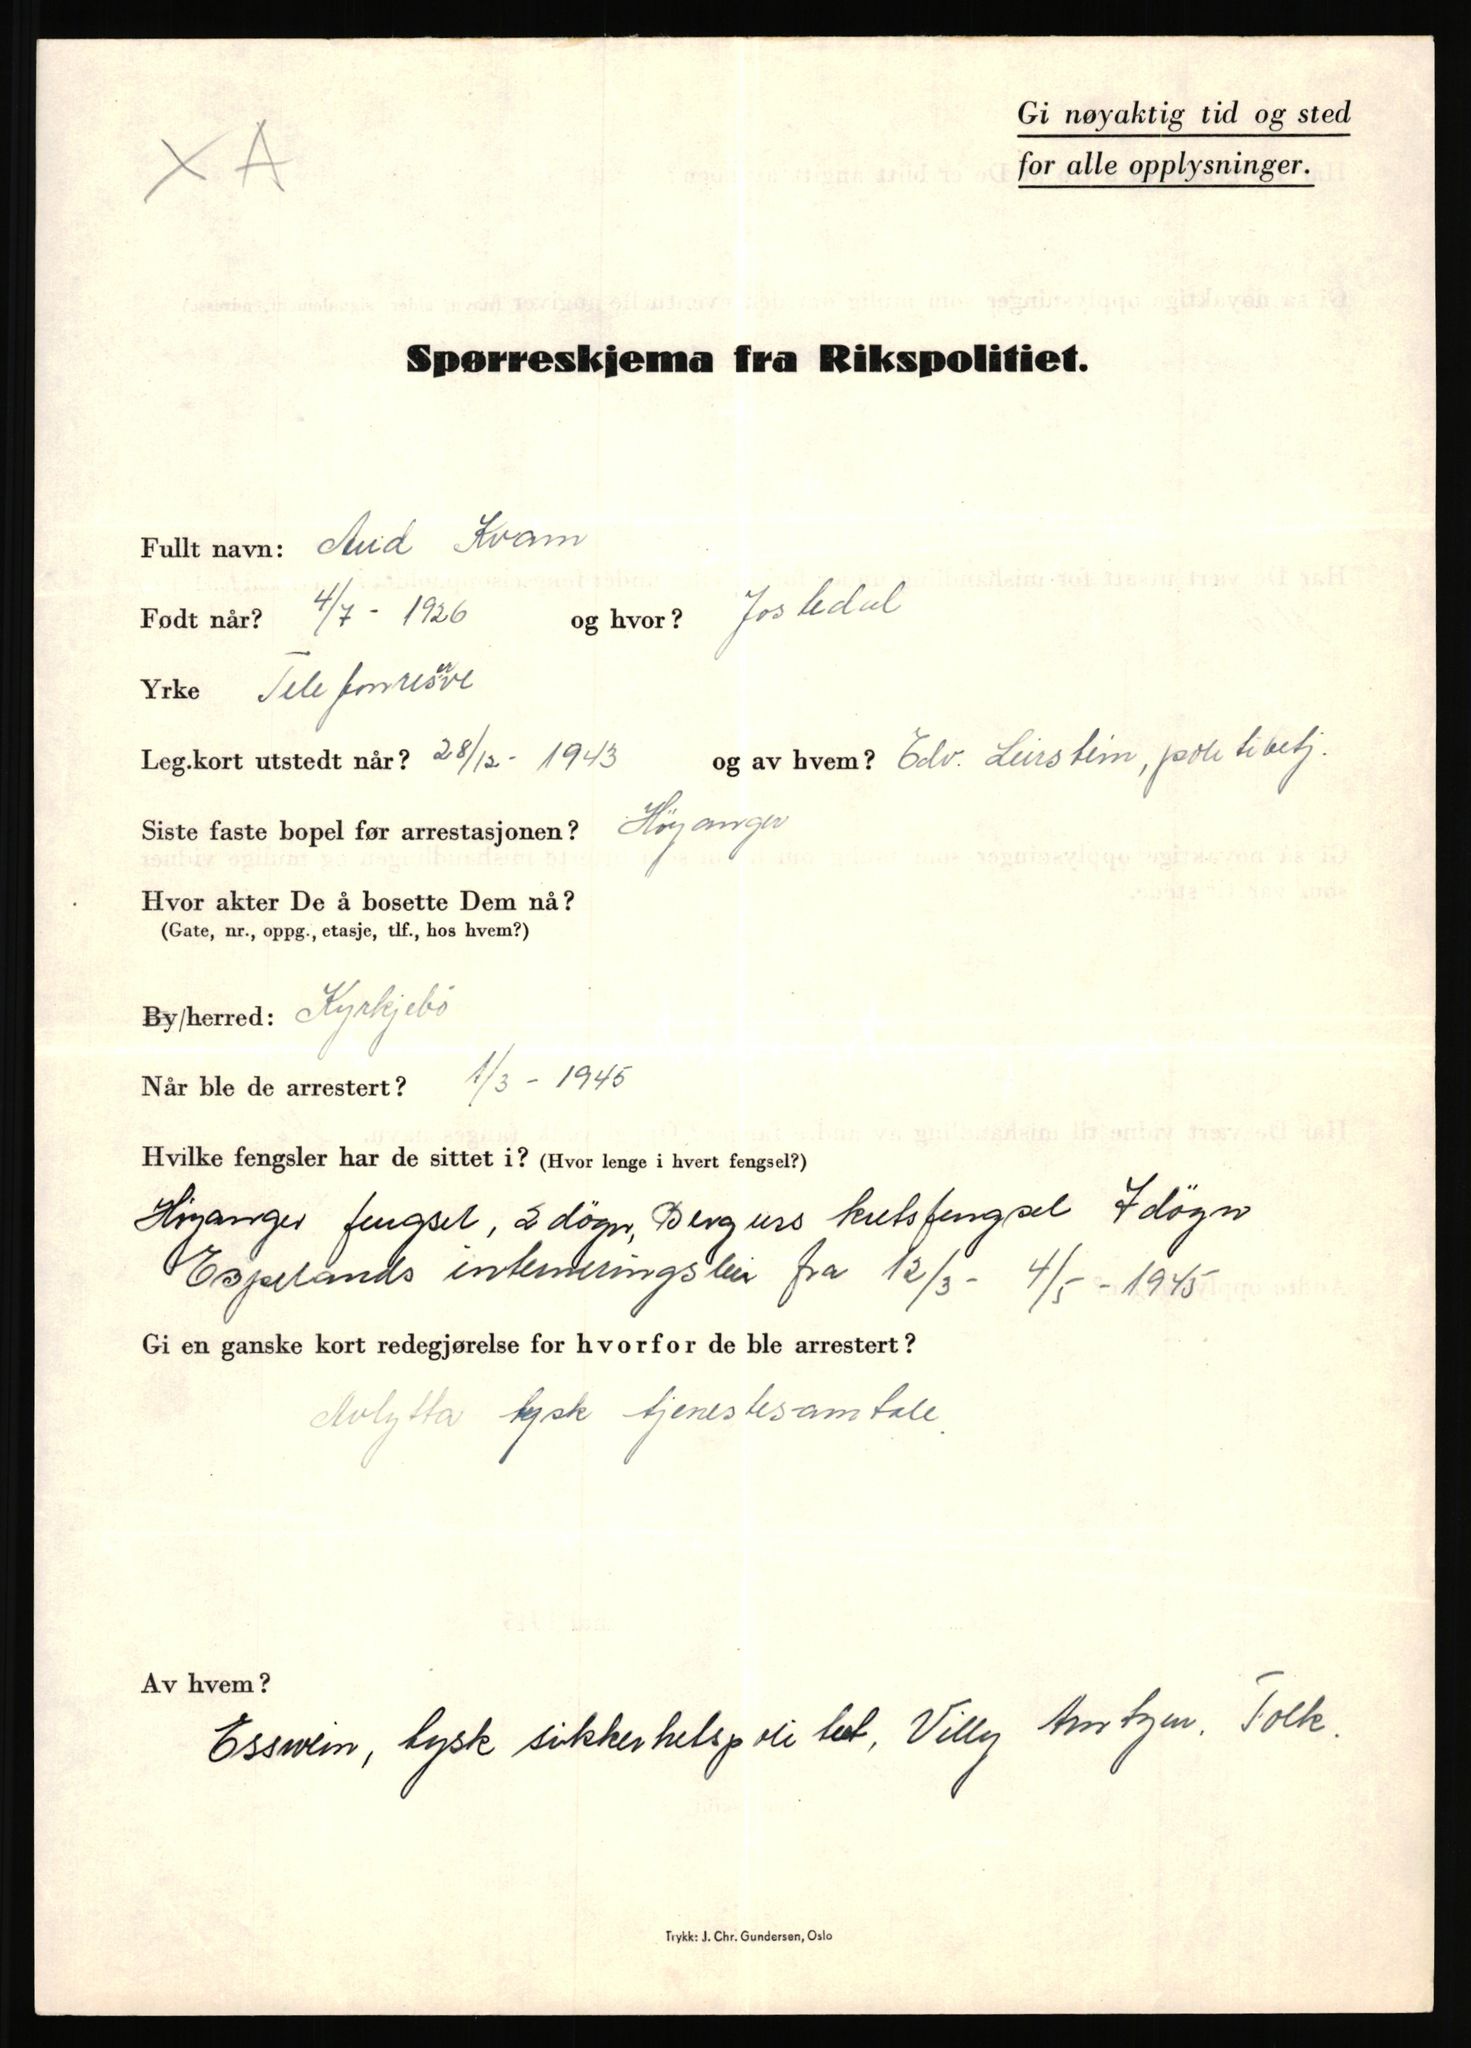 XA
Gi nøyaktig tid og sted
for alle opplysninger.
Spørreskjema fra Rikspolitiet.
Fullt navn: Aud Kvam
Født når? 4/7 - 1926 og hvor? Jostedal
Yrke Telefonreserve
Leg.kort utstedt når? 28/12 - 1943 og av hvem? Edv. Leirstein, politibetj.
Siste faste bopel før arrestasjonen? Höyanger
Hvor akter De å bosette Dem nå?
(Gate, nr., oppg., etasje, tlf., hos hvem?)
By/herred: Kyrkjebö
Når ble de arrestert? 1/3 - 1945
Hvilke fengsler har de sittet i? (Hvor lenge i hvert fengsel?)
Höyanger fengsel, 2 dögn, Bergens kretsfengsel 7 dögn
Espelands interneringsleir fra 12/3 - 4/5 - 1945
Gi en ganske kort redegjørelse for hvorfor de ble arrestert?
Avlytta tysk tjenestesamtale.
Av hvem?
Esswein, tysk sikkerhetspoliti, Villy Arntzen. Tolk.
Trykk: J. Chr. Gundersen, Oslo